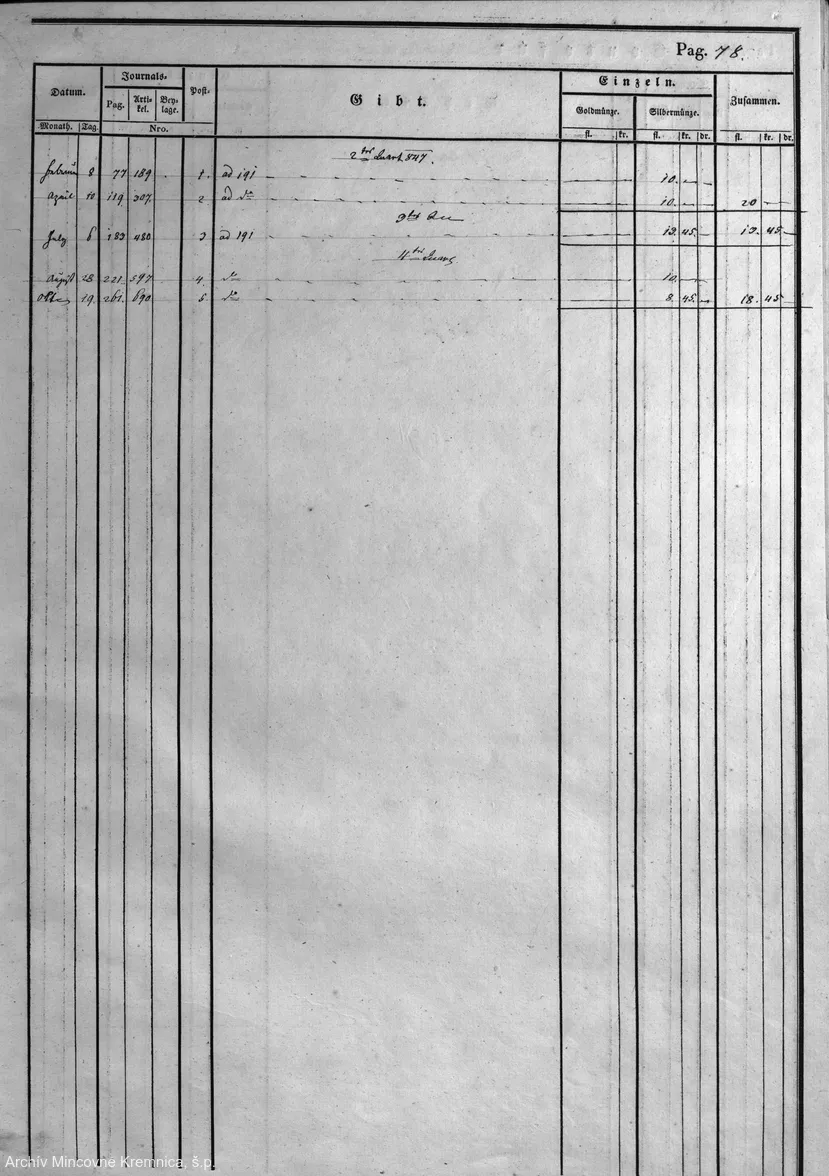 Pag. 78.
Datum. Journals- Post. Gibt. Einzeln. Zusammen.
Pag. Arti-kel. Bey-lage. Goldmünze. Silbermünze.
Monath. Tag. Nro. fl. kr. fl. kr. dr. fl. kr. dr.
2ter Quart 847.
Februar 8 77 189 1. ad 191 10. —
April 10 119 307 2 ad do 10. — 20 —
3ter do
July 6 183 480 3 ad 191 13. 45. — 13. 45 —
4ter Quart
August 28 221 597 4. do 10. —
19. 261. 690 5. do 8. 45. — 18. 45 —
Archív Mincovne Kremnica, š.p.